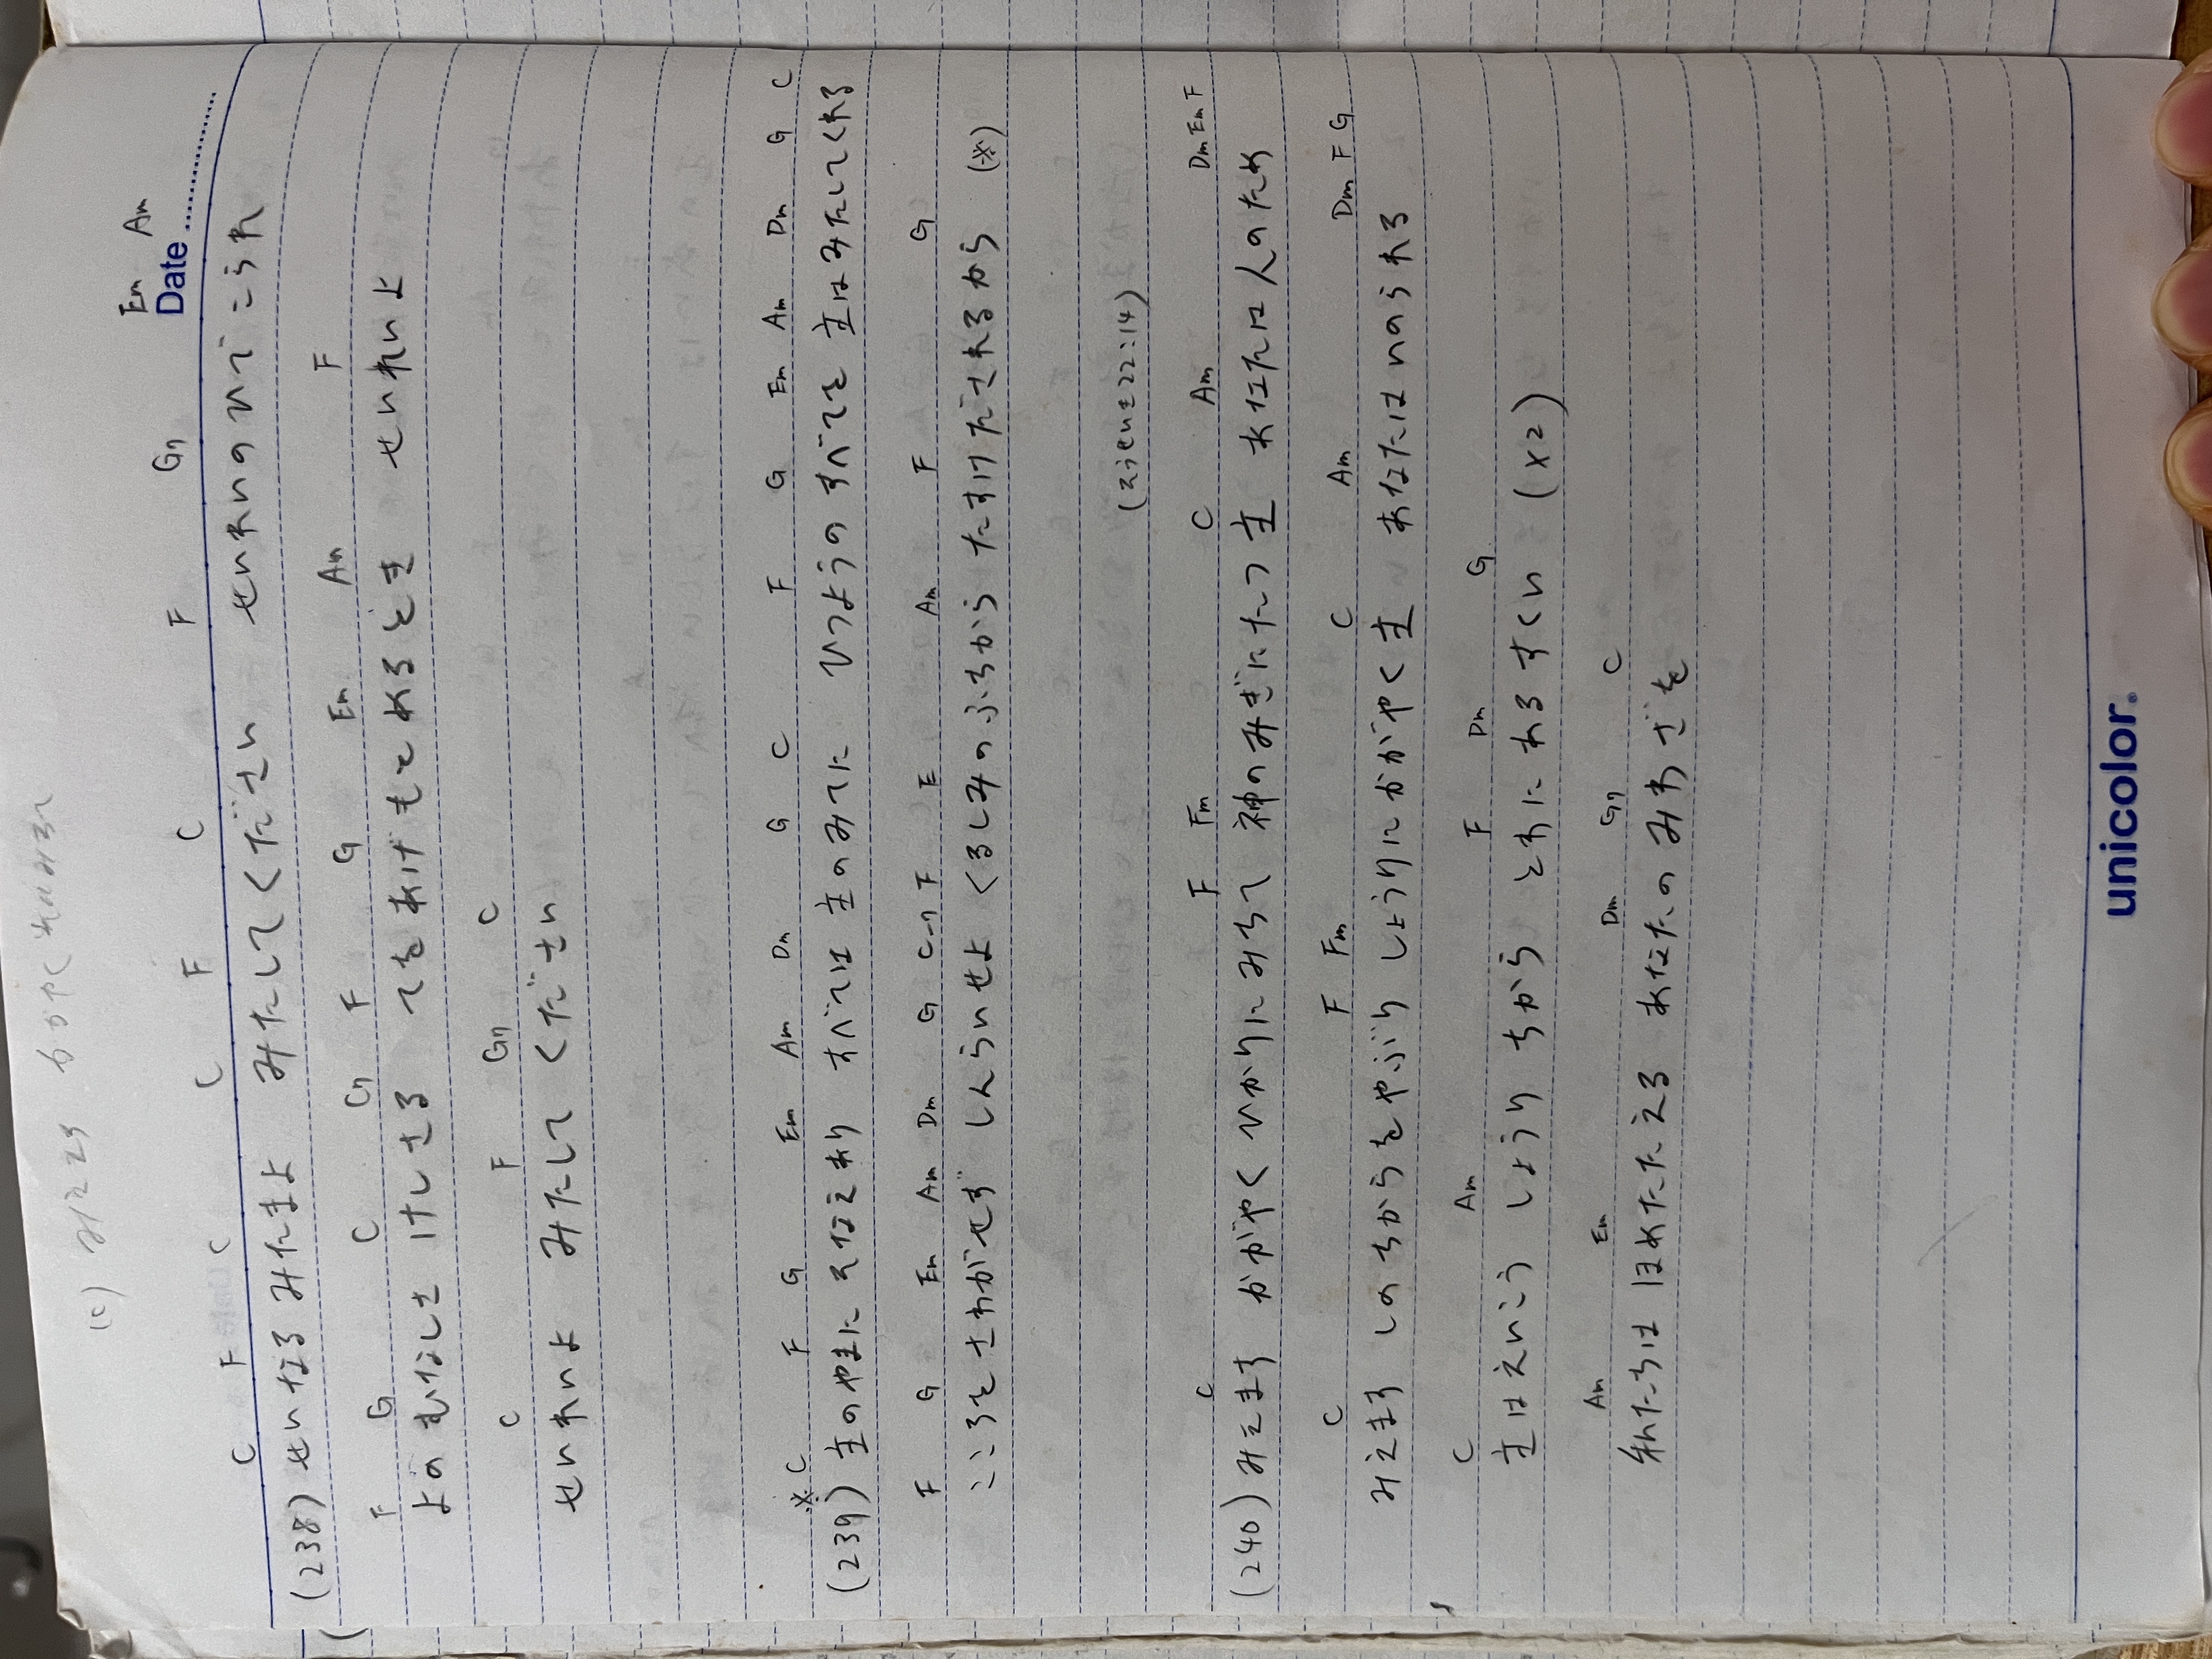 Em Am
Date
C F C C F C F G7
(238) せいなる みたまよ みたしてください せいれいのひでこられ
F G C C7 F G Em Am F
よのむなしさ けしさる てをあげもとめるとき せいれいよ
C F G7 C
せいれいよ みたして ください
※C F G Em Am Dm G C F G Em Am Dm G C
(239) 主のやまに そなえあり すべては 主のみてに ひつようの すべてを 主はみたしてくれる
F G Em Am Dm G C→7 F E Am F G
こころをさわがせず しんらいせよ くるしみのふちから たすけだされるから (※)
(そうせいき22:14)
C F Fm C Am Dm Em F
(240) みえます かがやく ひかりにみちて 神のみぎにたつ主 あなたは人のため
C F Fm C Am Dm F G
みえます しのちからをやぶり しょうりにかがやく主 あなたはいのられる
C Am F Dm G
主はえいこう しょうり ちから とわにわるすくい (×2)
Am Em Dm G7 C
私たちは ほめたたえる あなたの みわざを
unicolor.